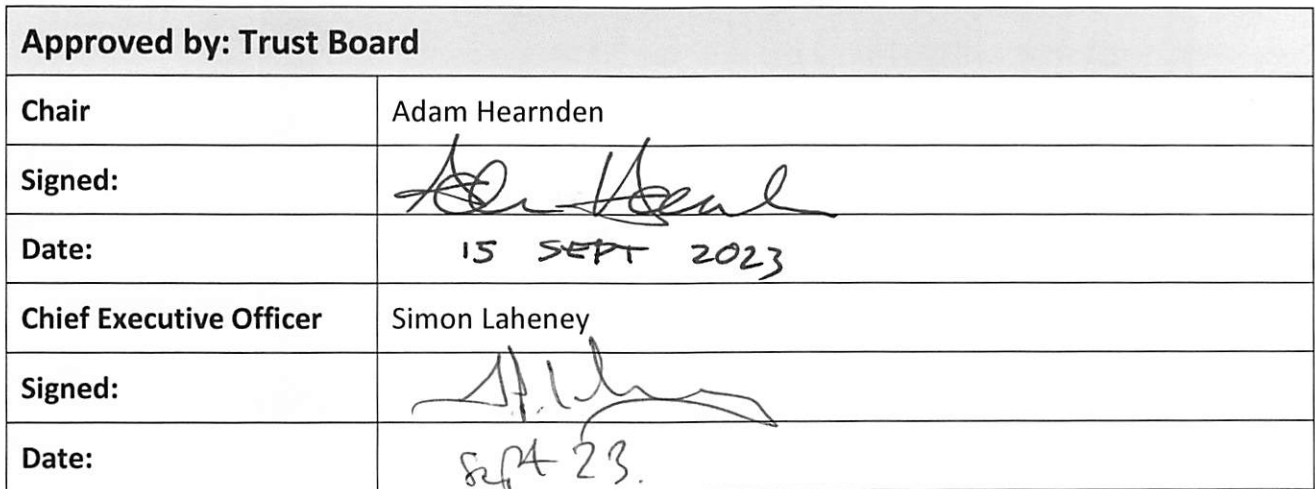 Approved by: Trust Board
Chair Adam Hearnden
Signed:
Date: 15 SEPT 2023
Chief Executive Officer Simon Laheney
Signed:
Date: Sept 23.